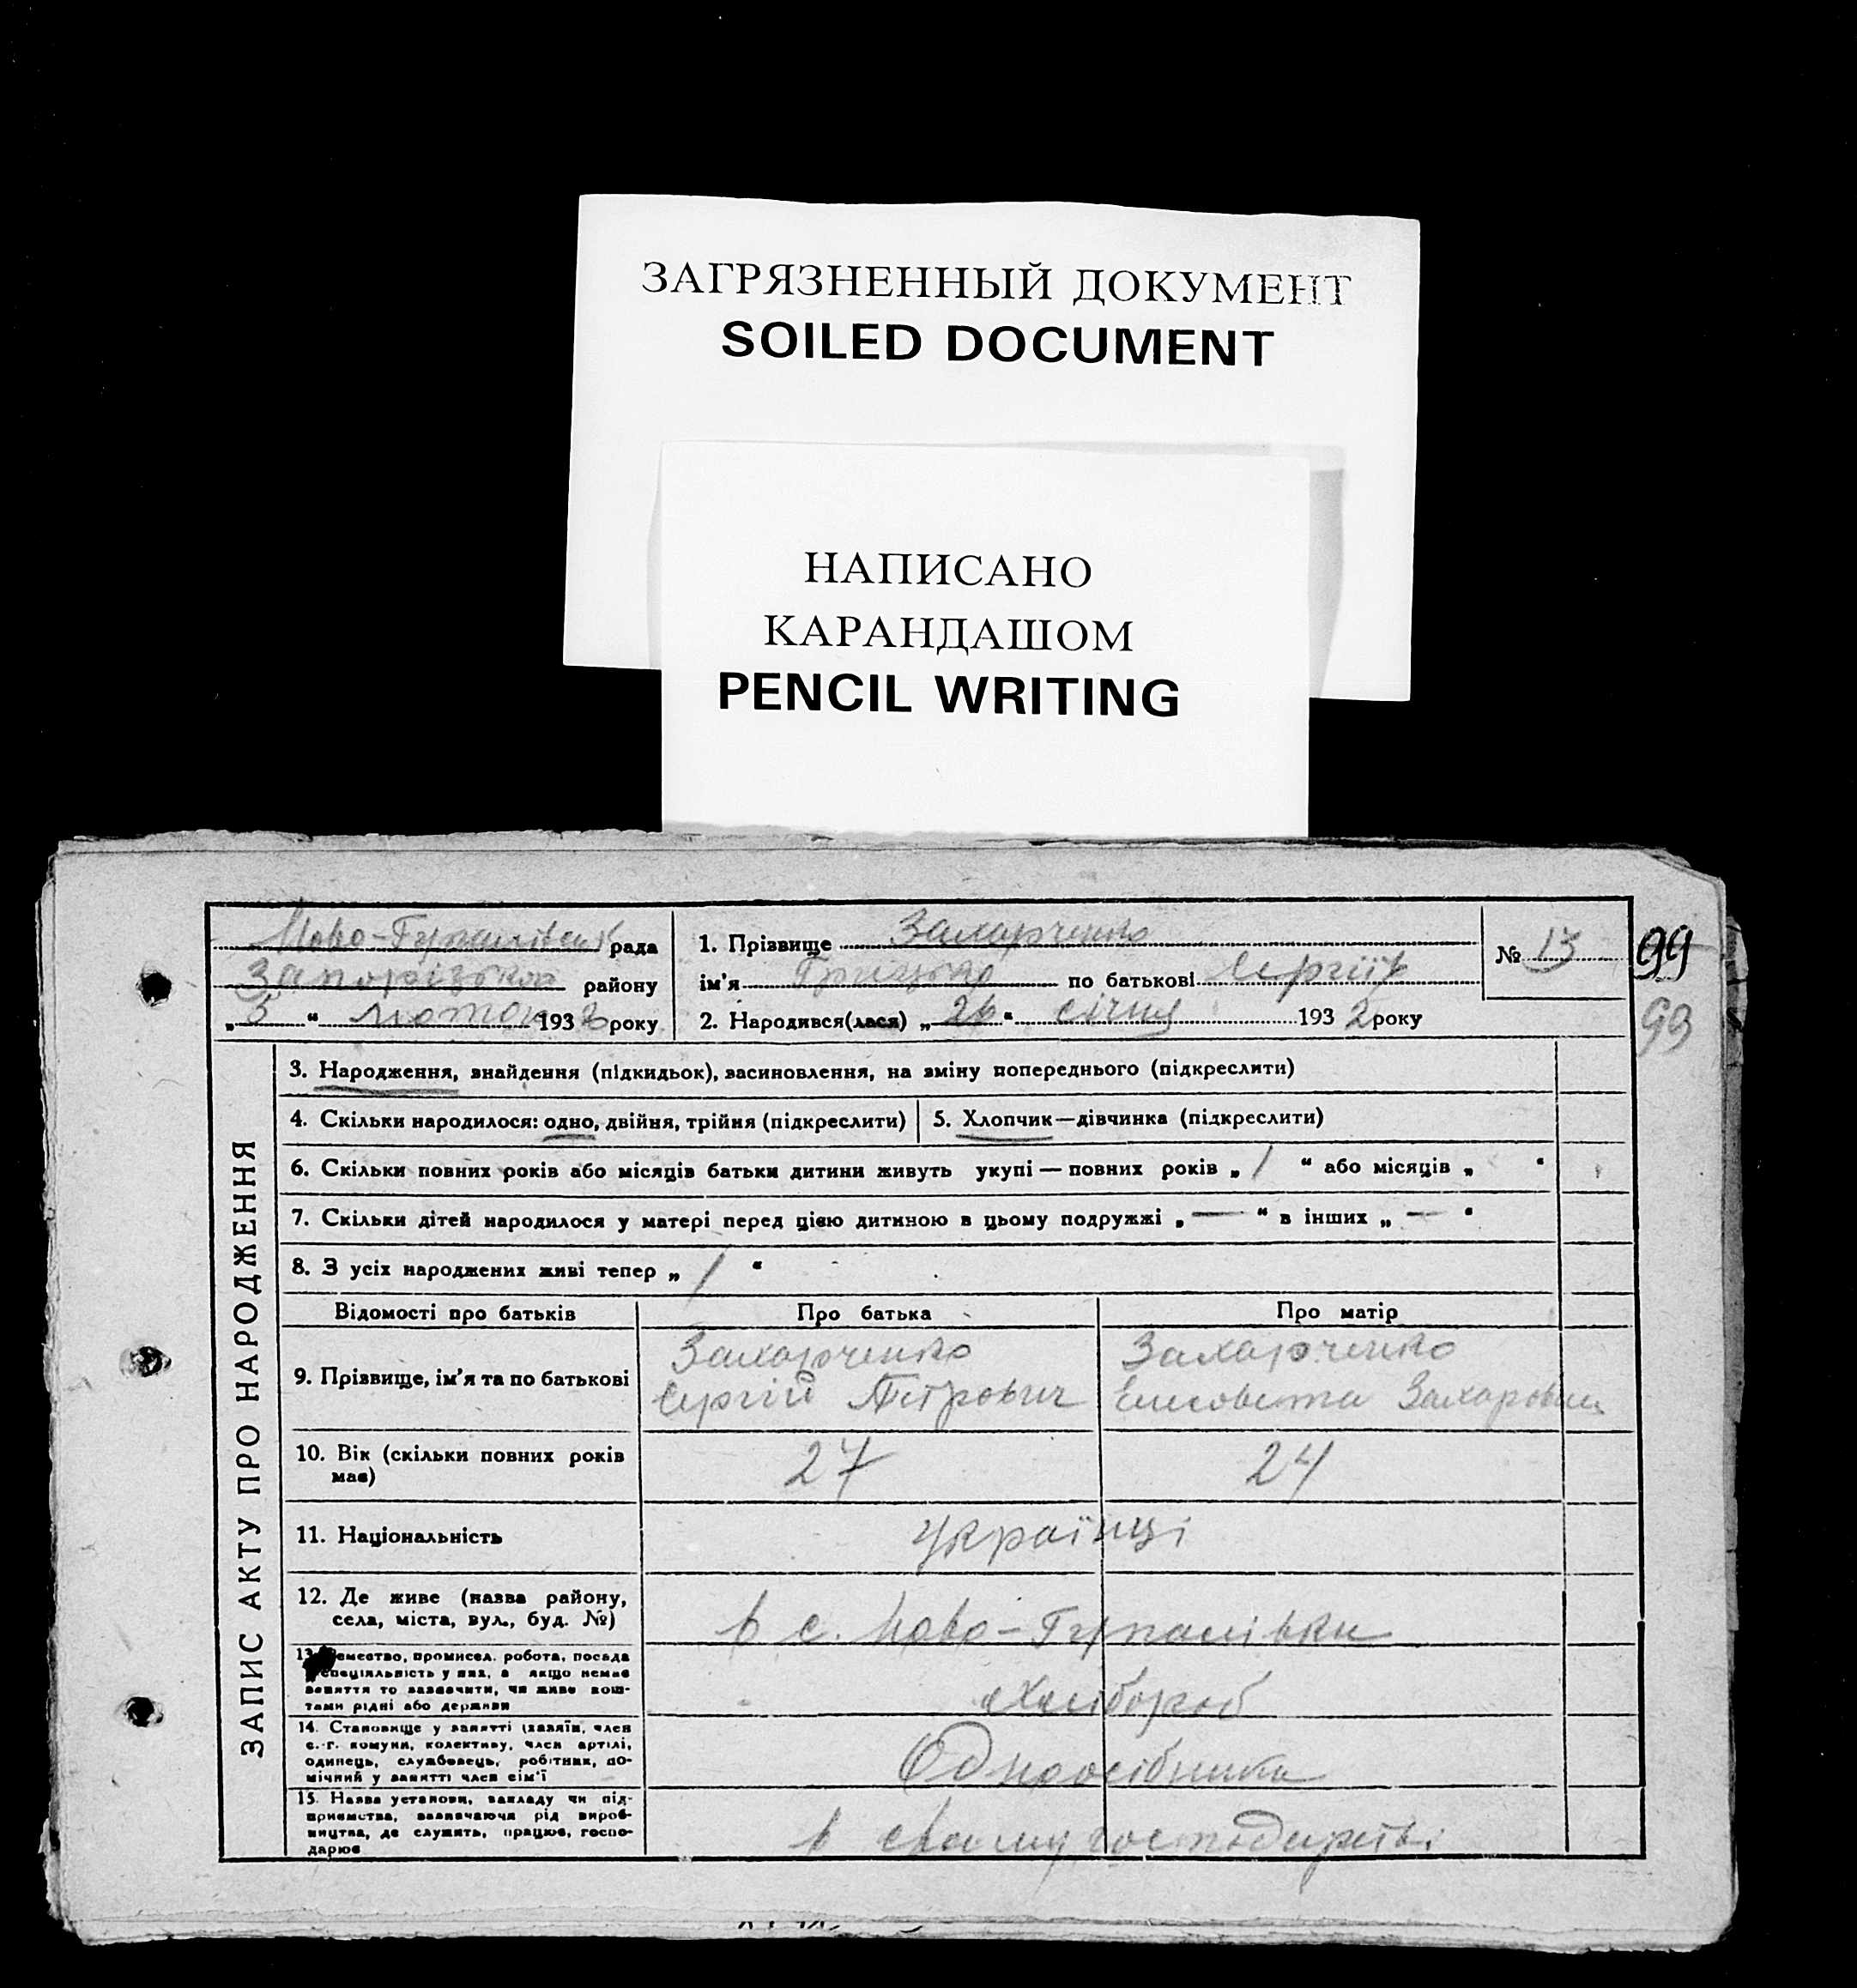 ЗАГРЯЗНЕННЫЙ ДОКУМЕНТ
SOILED DOCUMENT
НАПИСАНО
КАРАНДАШОМ
PENCIL WRITING
рада
Запорізького району
„5“ лютого 1932 року
1. Прізвище Захарченко
ім'я Грицько по батькові Сергіїв
2. Народився(лася) „26“ січня 1932 року
№ 13
99
93
ЗАПИС АКТУ ПРО НАРОДЖЕННЯ
3. Народження, знайдення (підкидьок), засиновлення, на зміну попереднього (підкреслити)
4. Скільки народилося: одно, двійня, трійня (підкреслити)
5. Хлопчик—дівчинка (підкреслити)
6. Скільки повних років або місяців батьки дитини живуть укупі — повних років „ 1 “ або місяців „ “
7. Скільки дітей народилося у матері перед цією дитиною в цьому подружжі „ — “ в інших „ — “
8. З усіх народжених живі тепер „ 1 “
Відомості про батьків
Про батька
Про матір
9. Прізвище, ім'я та по батькові
Захарченко
Сергій Петрович
Захарченко
Елисовета Захаровна
10. Вік (скільки повних років
має)
27
24
11. Національність
Українці
12. Де живе (назва району,
села, міста, вул., буд. №)
в с. Ново-
13. Ремество, промисел, робота, посада
спеціяльність у них, а якщо немає
заняття то зазначити, чи живе кош-
тами рідні або держави
Хлібороб
14. Становище у занятті (хазяїн, член
с.-г. комуни, колективу, член артілі,
одинець, службовець, робітник, по-
мічний у занятті член сім'ї
Одноосібники
15. Назва установи, закладу чи під-
приємства, зазначаючи рід вироб-
ництва, де служить, працює, госпо-
дарює
в свому господарстві